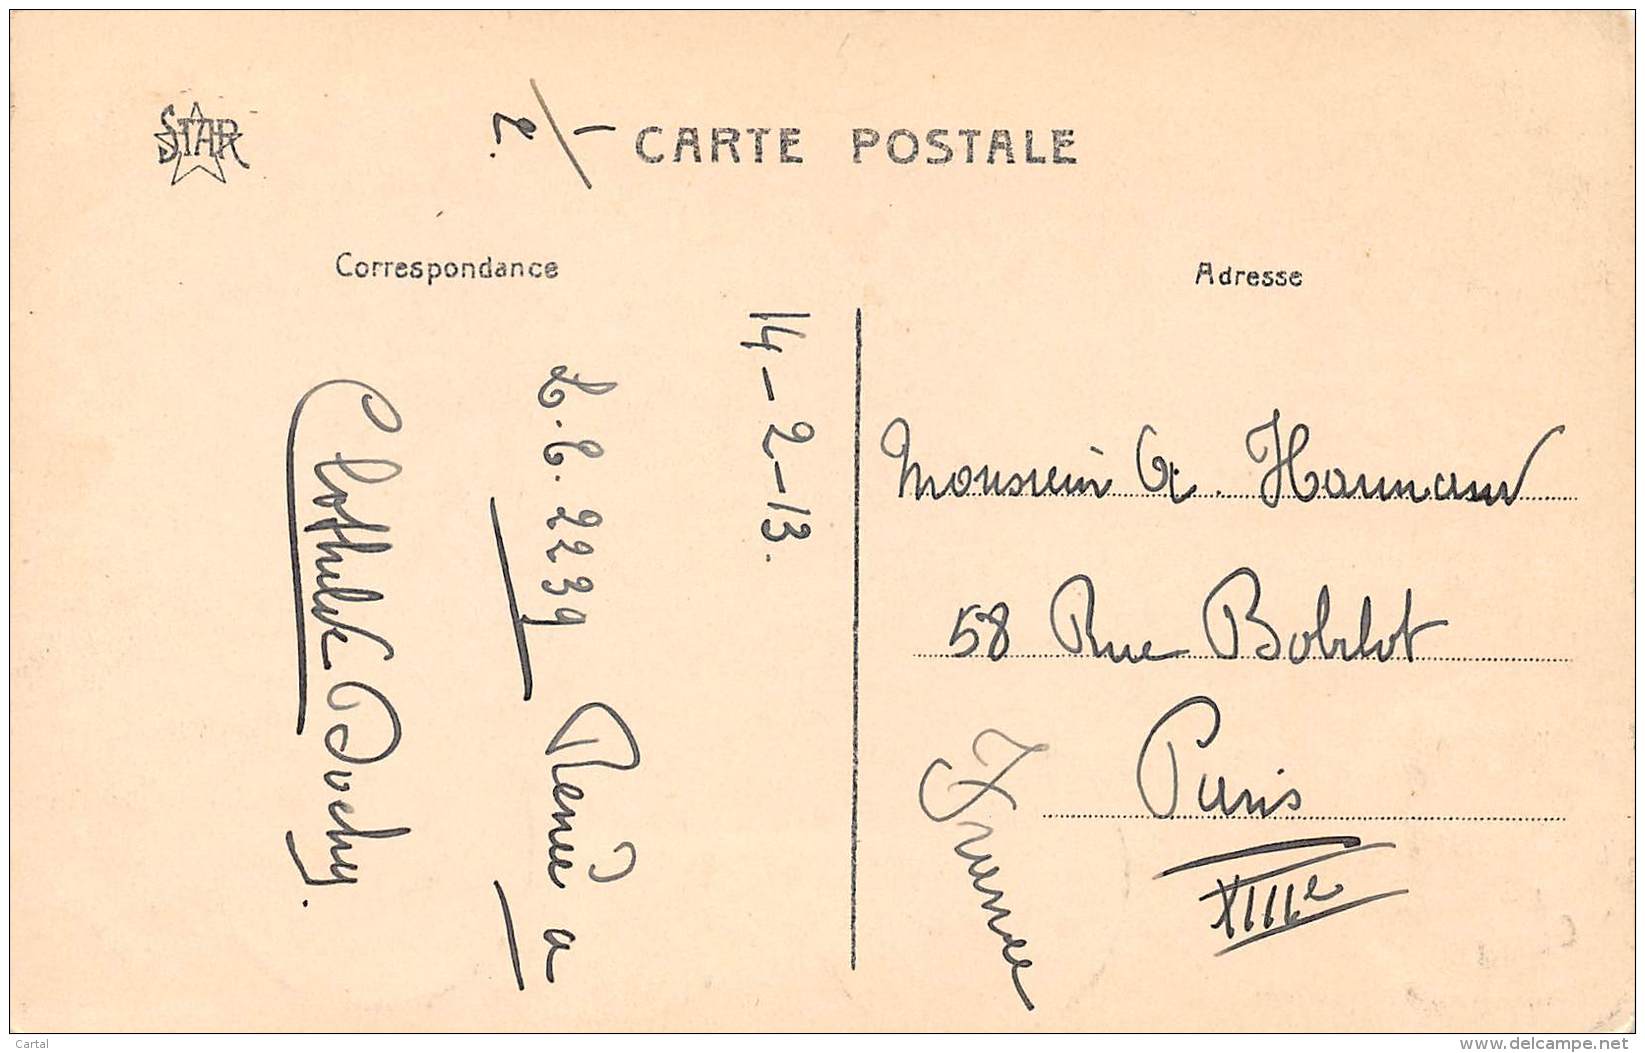 STAR
1/2.
CARTE POSTALE
Correspondance
Adresse
14-2-13.
L.C. 2239
a
Clothilde Duchy.
Monsieur
58 Rue Bobillot
Paris
XIIIe
France
Cartal
www.delcampe.net